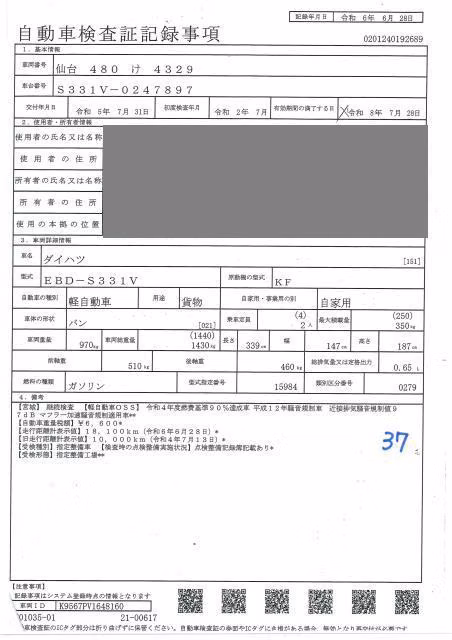 記録年月日 令和 6年 6月 28日
自動車検査証記録事項
0201240192689
1．基本情報
車両番号 仙台 480 け 4329
車台番号 S331V-0247897
交付年月日 令和 5年 7月 31日 初度検査年月 令和 2年 7月 有効期間の満了する日 令和 8年 7月 28日
2．使用者・所有者情報
使用者の氏名又は名称
使用者の住所
所有者の氏名又は名称
所有者の住所
使用の本拠の位置
3．車両詳細情報
車名 ダイハツ [151]
型式 EBD-S331V 原動機の型式 KF
自動車の種別 軽自動車 用途 貨物 自家用・事業用の別 自家用
車体の形状 バン [021] 乗車定員 (4) 2人 最大積載量 (250) 350kg
車両重量 970kg 車両総重量 (1440) 1430kg 長さ 339cm 幅 147cm 高さ 187cm
前軸重 510kg 後軸重 460kg 総排気量又は定格出力 0.65 L
燃料の種類 ガソリン 型式指定番号 15984 類別区分番号 0279
4．備考
【宮城】 継続検査 【軽自動車OSS】 令和4年度燃費基準90％達成車 平成12年騒音規制車 近接排気騒音規制値9
7dB マフラー加速騒音規制適用車**
【自動車重量税額】¥6,600*
【走行距離計表示値】18,100km（令和6年6月28日）*
【旧走行距離計表示値】10,000km（令和4年7月13日）*
【受検種別】指定整備車 【検査時の点検整備実施状況】点検整備記録簿記載あり*
【受検形態】指定整備工場**
37
【注意事項】
記録事項はシステム登録時点の情報となります
車両ID K9567PV1648160
01035-01 21-00617